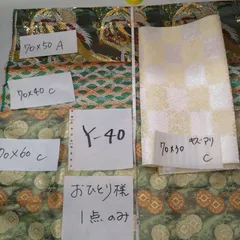 70×50 A
70×40 C
70×60 C
Y-40
おひとり様
1点のみ
70×30
キズアリ
C